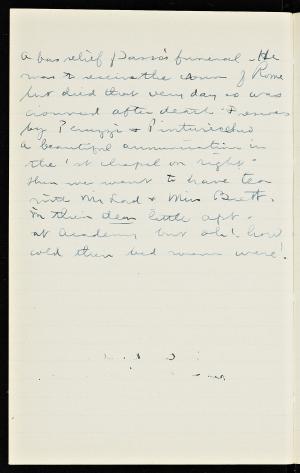 A bas relief Tasso's funeral - He
was to receive the crown of Rome
but died that very day so was
crowned after death. Frescoes
by Peruzzi & Pinturicchio
a beautiful annunciation in
the 1st chapel on right -
Then we went to have tea
with Mr Lad & Miss Brett.
in their dear little apt -
at Academy but oh! how
cold their bed rooms were!